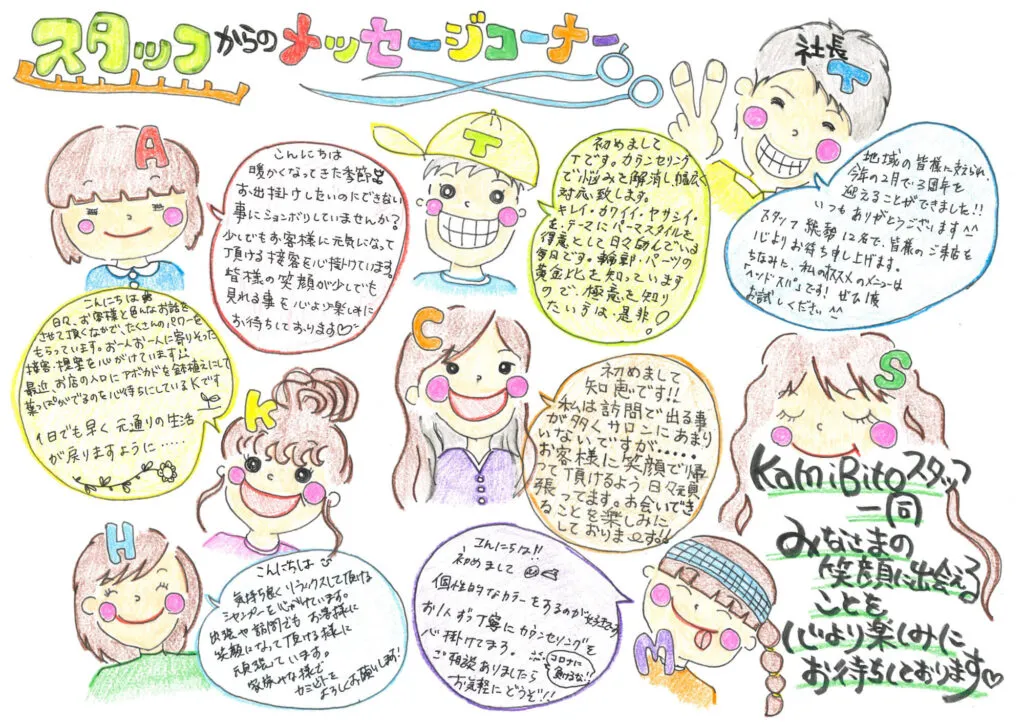 スタッフからのメッセージコーナー
社長
T
地域の皆様に支えられ、
今年の2月で3周年を
迎えることができました!!
いつもありがとうございます^^
スタッフ総勢12名で、皆様のご来店を
心よりお待ち申し上げます。
ちなみに、私のオススメのメニューは
「ヘッドスパ」です! ぜひ1度
お試しください^^
A
こんにちは
暖かくなってきた季節
お出掛けしたいのにできない
事にションボリしていませんか?
少しでもお客様に元気になって
頂ける接客を心掛けています。
皆様の笑顔が少しでも
見れる事を心より楽しみに
お待ちしております♡
T
初めまして
Tです。カウンセリング
で悩みを解消し、幅広く
対応致します。
キレイ・カワイイ・ヤサシイ・
を、テーマにパーマスタイルを
得意として日々励んでいる
毎日です。輪郭・パーツの
黄金比を知っています
ので、極意を知り
たい方は、是非!
K
こんにちは
日々、お客様と色んなお話を
させて頂くなかで、たくさんのパワーを
もらっています。お一人お一人に寄りそった
接客・提案を心がけています!!
最近、お店の入口にアボカドを鉢植えにして
葉っぱがでるのを心待ちにしているKです
1日でも早く 元通りの生活
が戻りますように……
C
初めまして
知恵です!!
私は訪問で出る事
が多くサロンにあまり
いないですが……
お客様に笑顔で帰
って頂けるよう日々頑
張ってます。お会いでき
ることを楽しみに
しております!!
H
こんにちは
気持ち良くリラックスして頂ける
シャンプーを心がけています。
訪問でもお客様に
笑顔になって頂ける様に
頑張っています。
よろしくお願いします!
M
こんにちは!!
初めまして
個性的なカラーをするのが好きです
お1人ずつ丁寧にカウンセリングを
心掛けてます。
ご相談ありましたら
お気軽にどうぞ!!
コロナに
負けるな!!
S
KamiBitoスタッフ
一同
みなさまの
笑顔に出会える
ことを
心より楽しみに
お待ちしております♡